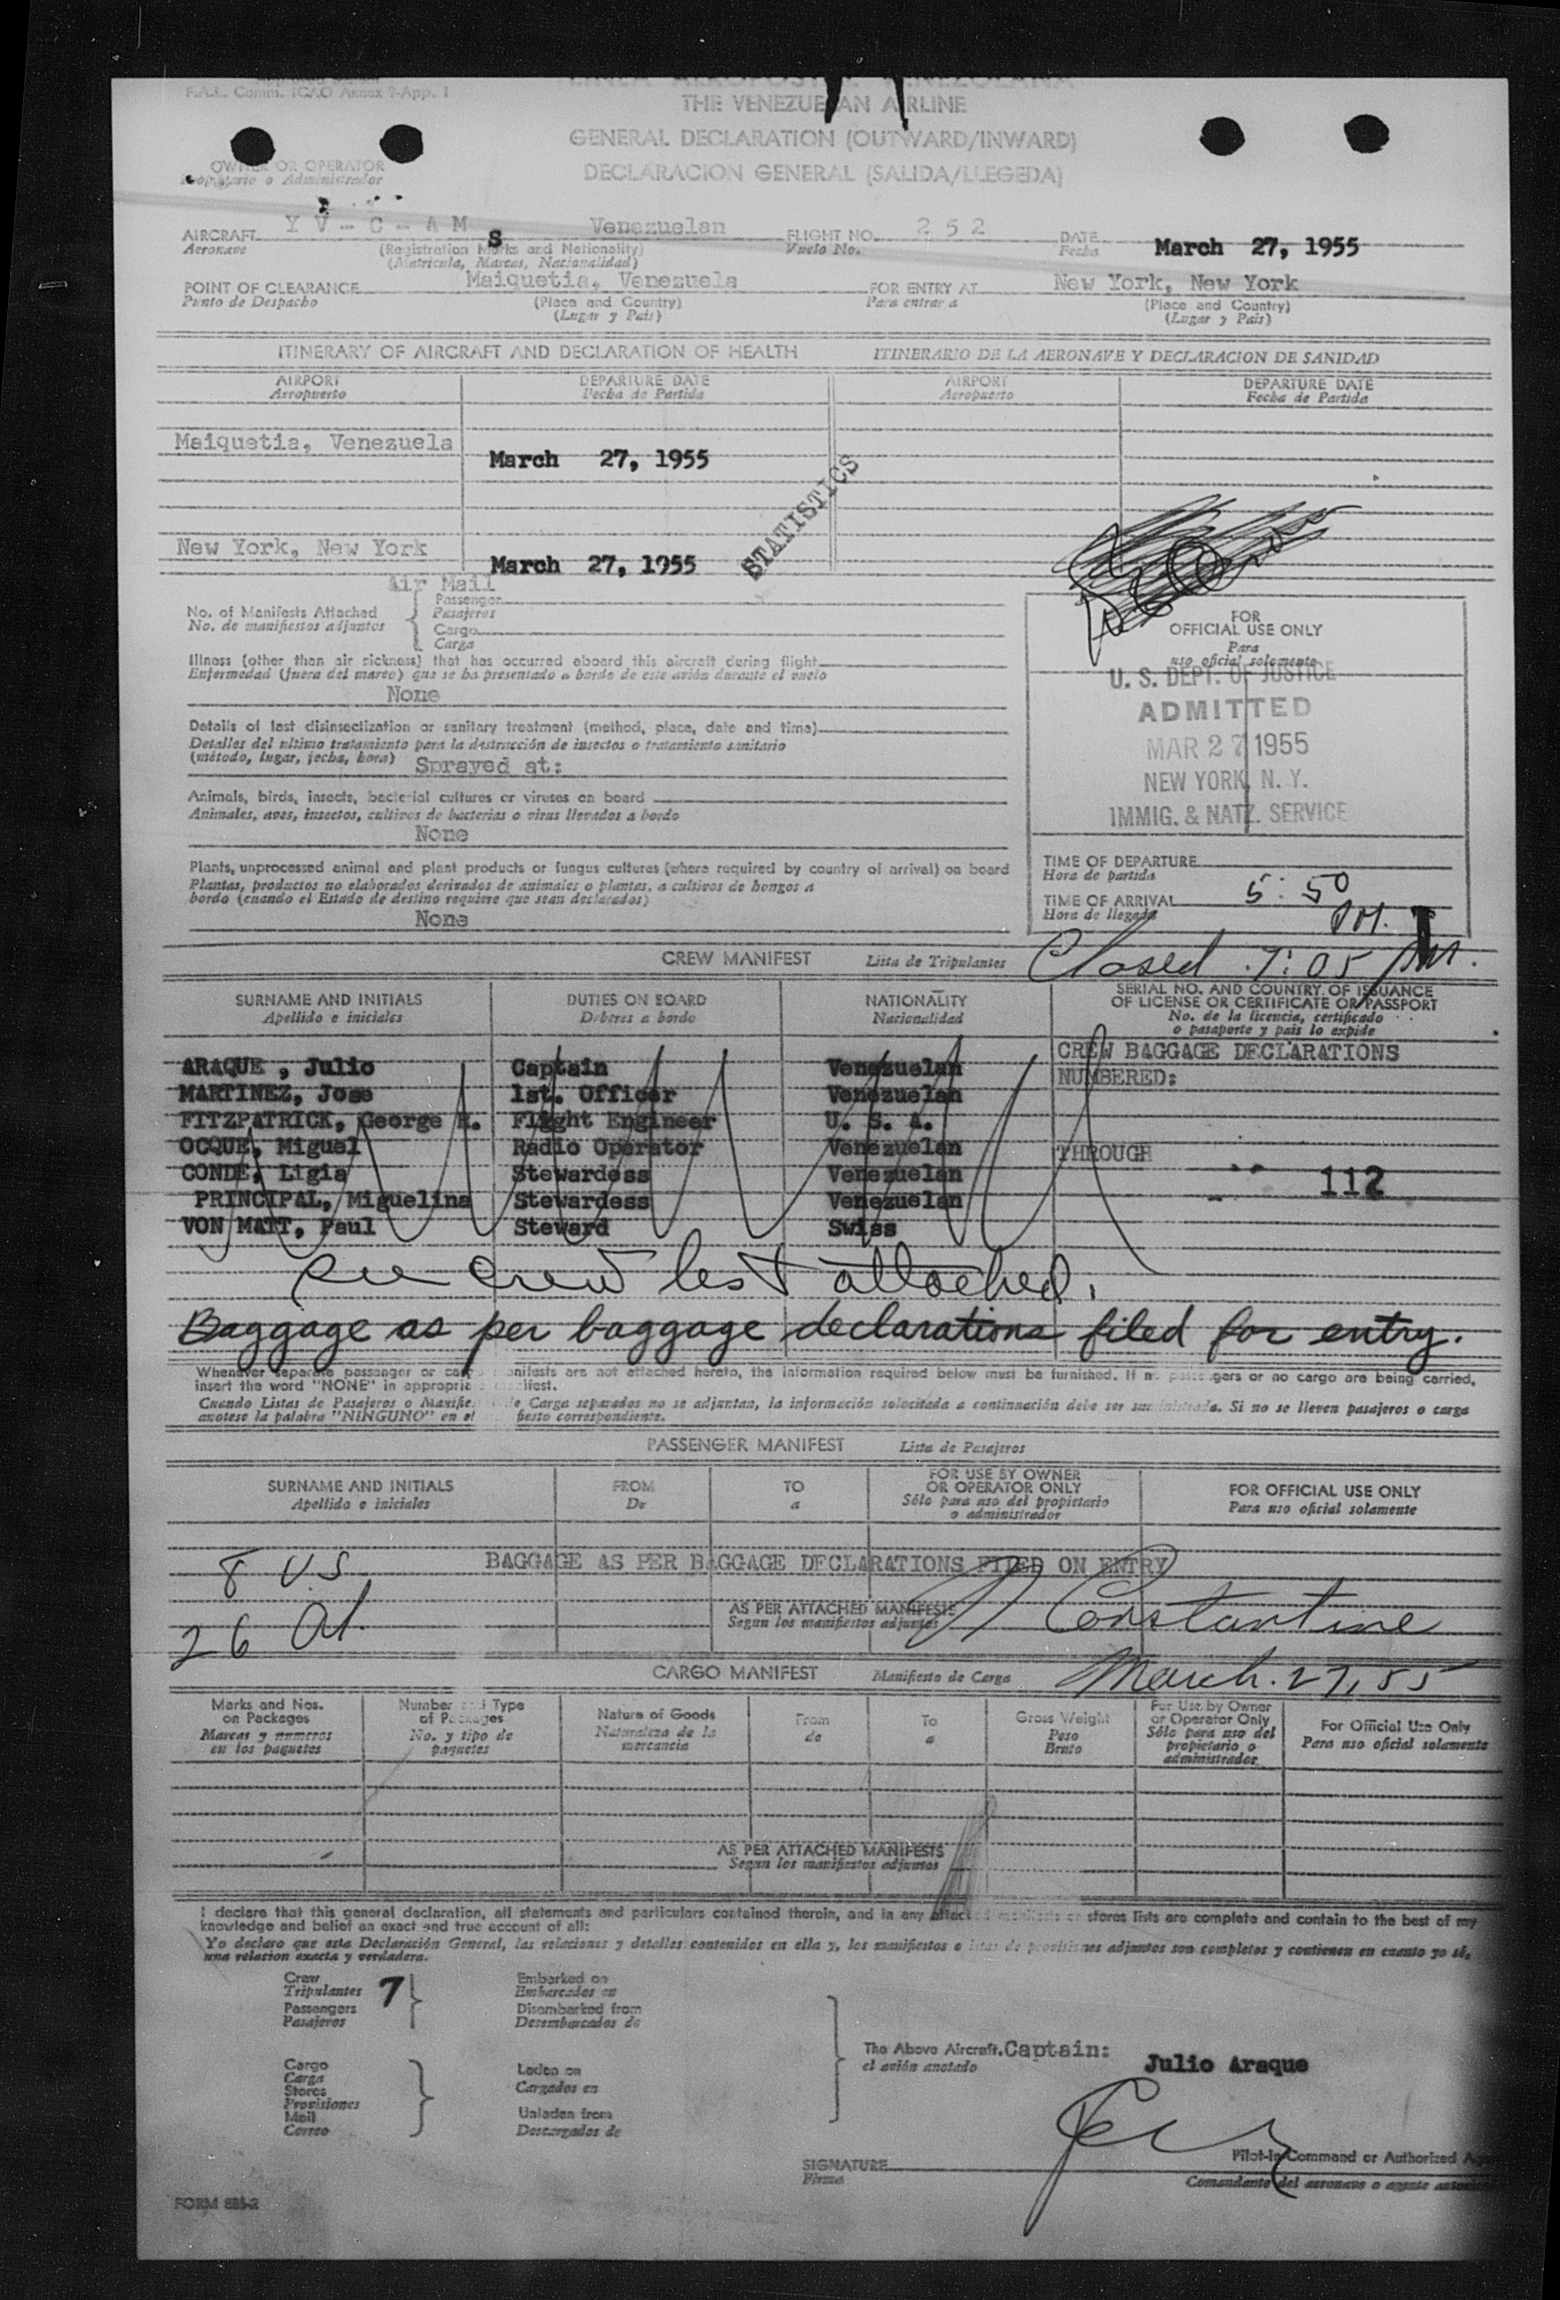 F.A.L. Comm. ICAO Annex 9-App. 1
LINEA AEROPOSTAL VENEZOLANA
THE VENEZUELAN AIRLINE
GENERAL DECLARATION (OUTWARD/INWARD)
DECLARACION GENERAL (SALIDA/LLEGEDA)
OWNER OR OPERATOR
Propietario o Administrador
AIRCRAFT YV-C-AMS Venezuelan FLIGHT NO. 252 DATE March 27, 1955
Aeronave (Registration Marks and Nationality) Vuelo No. Fecha
(Matricula, Marcas, Nacionalidad)
POINT OF CLEARANCE Maiquetia, Venezuela FOR ENTRY AT New York, New York
Punto de Despacho (Place and Country) Para entrar a (Place and Country)
(Lugar y Pais) (Lugar y Pais)
ITINERARY OF AIRCRAFT AND DECLARATION OF HEALTH ITINERARIO DE LA AERONAVE Y DECLARACION DE SANIDAD
AIRPORT DEPARTURE DATE AIRPORT DEPARTURE DATE
Aeropuerto Fecha de Partida Aeropuerto Fecha de Partida
Maiquetia, Venezuela March 27, 1955
STATISTICS
New York, New York March 27, 1955
Air Mail
No. of Manifests Attached Passenger
No. de manifiestos adjuntos Pasajeros
Cargo
Carga
Illness (other than air sickness) that has occurred aboard this aircraft during flight
Enfermedad (fuera del mareo) que se ha presentado a bordo de este avión durante el vuelo
None
Details of last disinsectization or sanitary treatment (method, place, date and time)
Detalles del ultimo tratamiento para la destrucción de insectos o tratamiento sanitario
(método, lugar, fecha, hora) Sprayed at:
Animals, birds, insects, bacterial cultures or viruses on board
Animales, aves, insectos, cultivos de bacterias o virus llevados a bordo
None
Plants, unprocessed animal and plant products or fungus cultures (where required by country of arrival) on board
Plantas, productos no elaborados derivados de animales o plantas, a cultivos de hongos a
bordo (cuando el Estado de destino requiere que sean declarados)
None
FOR
OFFICIAL USE ONLY
Para
uso oficial solamente
U. S. DEPT. OF JUSTICE
ADMITTED
MAR 27 1955
NEW YORK, N. Y.
IMMIG. & NATZ. SERVICE
TIME OF DEPARTURE
Hora de partida
TIME OF ARRIVAL 5:50
Hora de llegada PM.
Closed 7:05 PM.
CREW MANIFEST Lista de Tripulantes
SURNAME AND INITIALS DUTIES ON BOARD NATIONALITY SERIAL NO. AND COUNTRY OF ISSUANCE
OF LICENSE OR CERTIFICATE OR PASSPORT
Apellido e iniciales Deberes a bordo Nacionalidad No. de la licencia, certificado
o pasaporte y pais lo expide
CREW BAGGAGE DECLARATIONS
ARAQUE , Julio Captain Venezuelan
NUMBERED:
MARTINEZ, Jose 1st. Officer Venezuelan
FITZPATRICK, George H. Flight Engineer U. S. A.
OCQUE, Miguel Radio Operator Venezuelan THROUGH
CONDE, Ligia Stewardess Venezuelan 112
PRINCIPAL, Miguelina Stewardess Venezuelan
VON MATT, Paul Steward Swiss
see crew list attached.
Baggage as per baggage declarations filed for entry.
Whenever separate passenger or cargo manifests are not attached hereto, the information required below must be furnished. If no passengers or no cargo are being carried,
insert the word "NONE" in appropriate manifest.
Cuando Listas de Pasajeros o Manifiestos de Carga separados no se adjuntan, la información solocitada a continuación debe ser suministrada. Si no se lleven pasajeros o carga
anotese la palabra "NINGUNO" en el manifiesto correspondiente.
PASSENGER MANIFEST Lista de Pasajeros
SURNAME AND INITIALS FROM TO FOR USE BY OWNER
OR OPERATOR ONLY FOR OFFICIAL USE ONLY
Apellido e iniciales De a Sólo para uso del propietario
o administrador Para uso oficial solamente
8 U.S BAGGAGE AS PER BAGGAGE DECLARATIONS FILED ON ENTRY
AS PER ATTACHED MANIFESTS
Segun los manifiestos adjuntos
Constantine
26 Al.
March. 27, 55
CARGO MANIFEST Manifiesto de Carga
Marks and Nos.
on Packages
Marcas y numeros
en los paquetes
Number and Type
of Packages
No. y tipo de
paquetes
Nature of Goods
Naturaleza de la
mercancia
From
de
To
a
Gross Weight
Peso
Bruto
For Use by Owner
or Operator Only
Sólo para uso del
propietario o
administrador
For Official Use Only
Para uso oficial solamente
AS PER ATTACHED MANIFESTS
Segun los manifiestos adjuntos
I declare that this general declaration, all statements and particulars contained therein, and in any attached manifests or stores lists are complete and contain to the best of my
knowledge and belief an exact and true account of all:
Yo declaro que esta Declaración General, las relaciones y detalles contenidos en ella y, los manifiestos o listas de provisiones adjuntos son completos y contienen en cuanto yo sé,
una relacion exacta y verdadera.
Crew
Tripulantes 7
Passengers
Pasajeros
Embarked on
Embarcados en
Disembarked from
Desembarcados de
Cargo
Carga
Stores
Provisiones
Mail
Correo
Laden on
Cargados en
Unladen from
Descargados de
The Above Aircraft. Captain: Julio Araque
el avión anotado
SIGNATURE Pilot-in-Command or Authorized
Firma Comandante del aeronave o agente
FORM 881-2